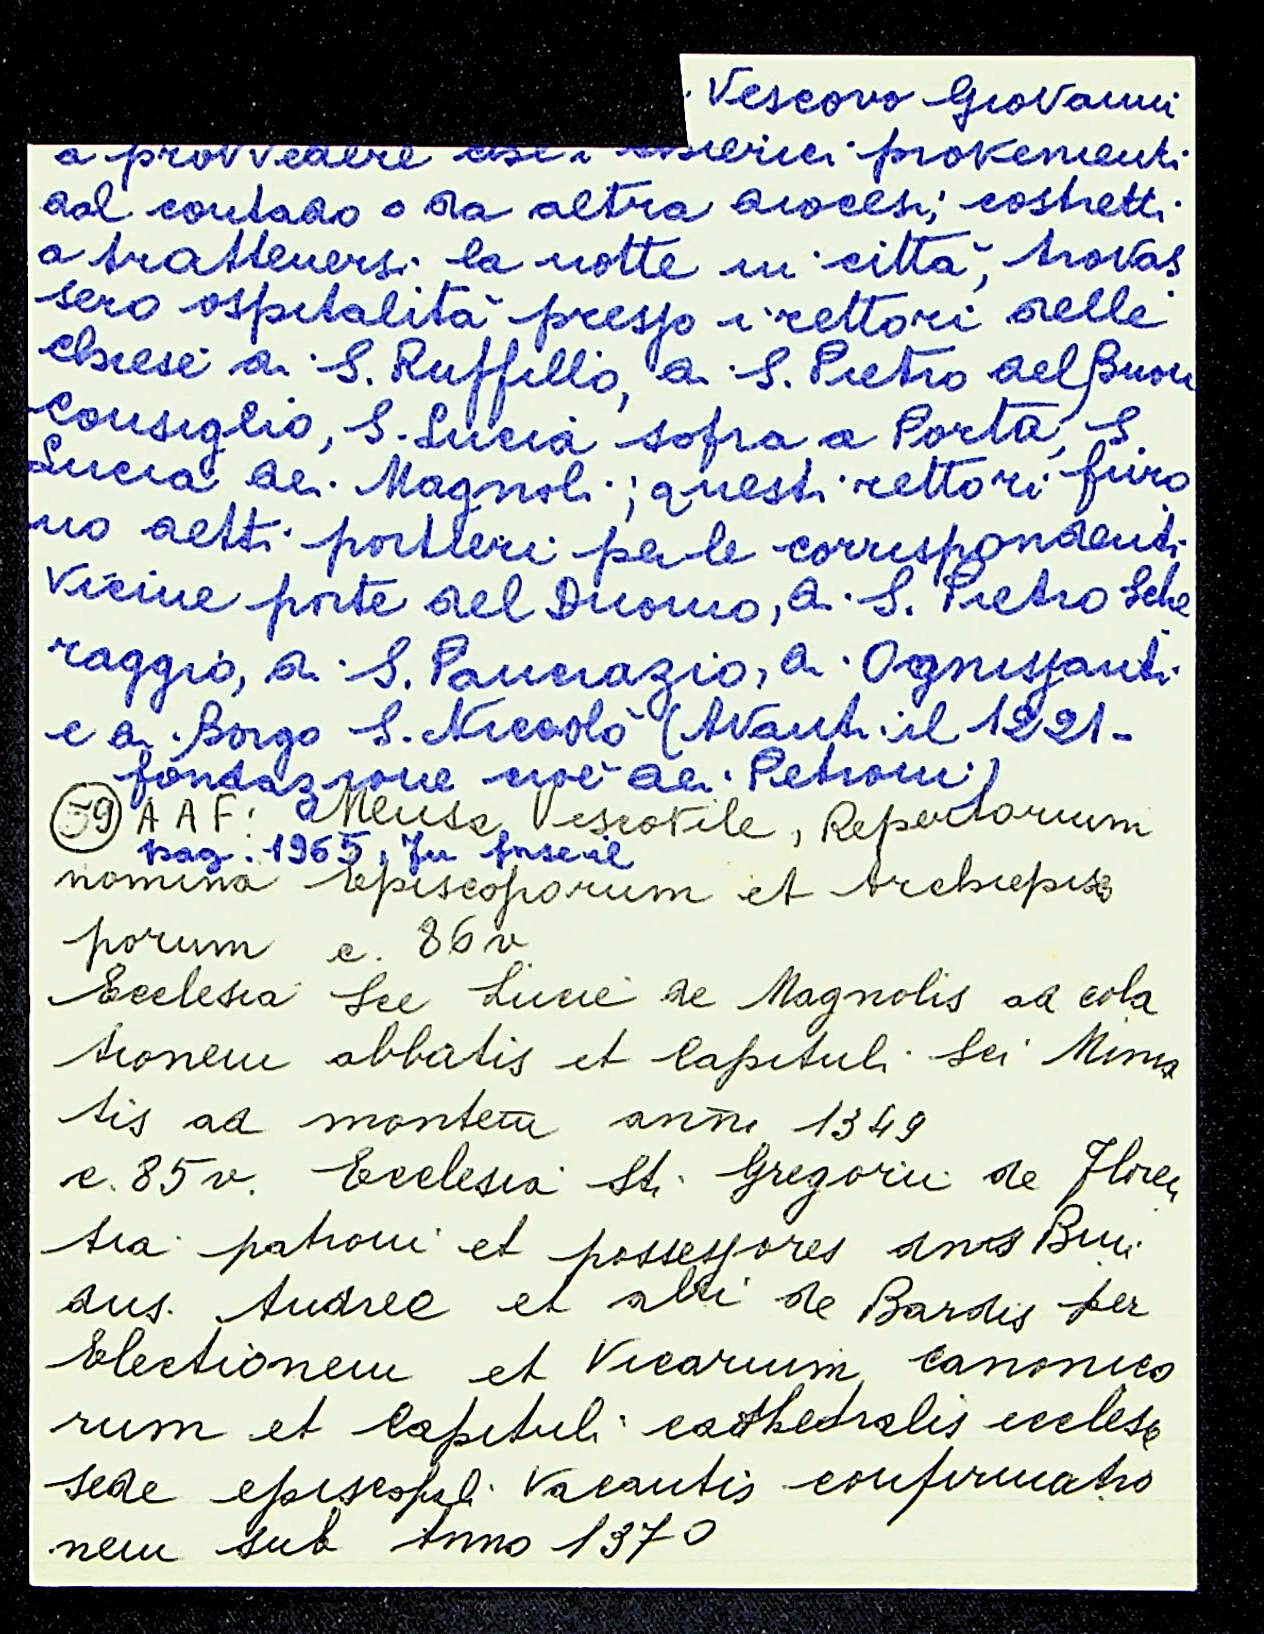 Vescovo Giovanni
a provvedere che i chierici provenienti
dal contado o da altra diocesi, costretti
a trattenersi la notte in città, trovas
sero ospitalità presso i rettori delle
chiese di S. Ruffillo, di S. Pietro del Buon
Consiglio, S. Lucia sopra a Porta, S.
Lucia dei Magnoli; questi rettori furo
no detti portieri per le corrispondenti
vicine porte del Duomo, di S. Pietro Sche
raggio, di S. Pancrazio, di Ognissanti
e di Borgo S. Niccolò (Avanti il 1221-
fondazione cioè dei Petroni)
59 A A F: Mensa Vescovile, Repertorium
pag. 1965, In
nomina Episcoporum et Archiepisco
porum c. 86v
Ecclesia Sce Lucie de Magnolis ad cola
tionem abbatis et Capituli Sci Minia
tis ad montem anni 1349
c. 85v. Ecclesia Sti Gregorii de Floren
tia patroni et possessores dnos
dns. Andree et alii de Bardis per
Electionem et Vicarium canonico
rum et Capituli cathedralis ecclese
sede episcopali vacantis confirmatio
nem sub Anno 1370